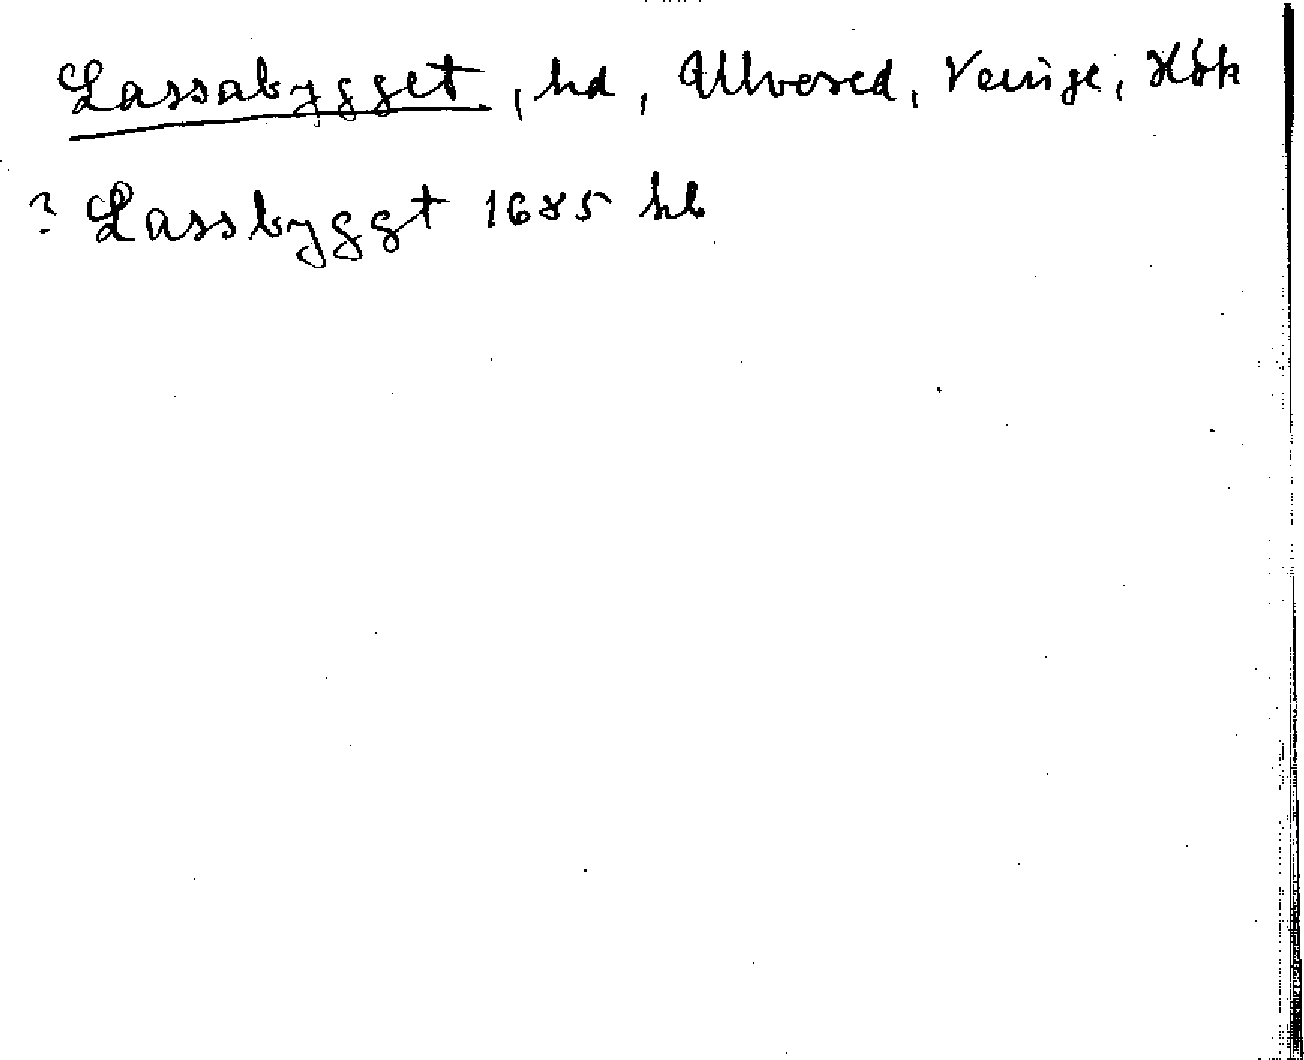 Lassabygget, hd, Ulvered, Veinge, Hök
? Lassbyggt 1685 hb